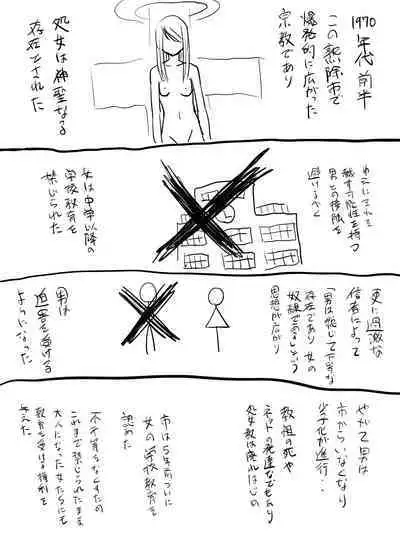 1970
年代前半
この熟除市で
爆発的に広がった
宗教であり
処女は神聖なる
存在とされた
ゆえにそれを
穢す可能性を持つ
男との接触を
避けるべく
女は中学以降の
学校教育を
禁じられた
更に過激な
信者によって
「男は総じて下等な
存在であり女の
奴隷である」という
思想が広がり
男は
迫害を受ける
ようになった
やがて男は
市からいなくなり
少子化が進行…
教祖の死や
ネットの発達などもあり
処女教は廃れはじめ
市は5年前ついに
女の学校教育を
認めた
不平等をなくすため
これまで禁じられたまま
大人になった女たちにも
教育を受ける権利を
与えた